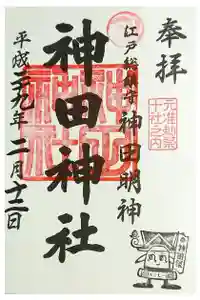 奉拝
元准勅祭
十社之内
江戸総鎮守
神田明神
神田神社
平成二十九年二月十二日